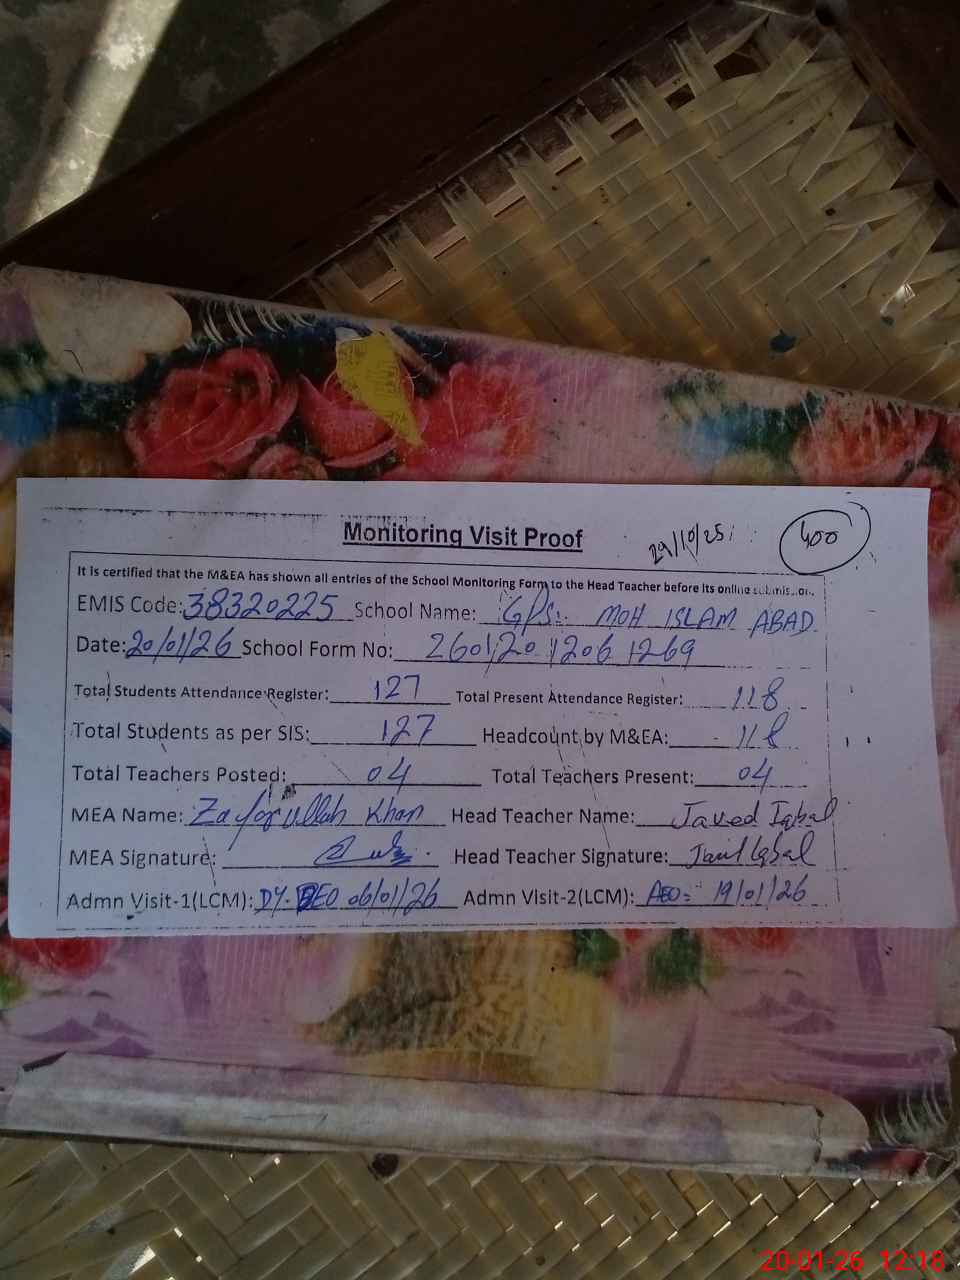 Monitoring Visit Proof
29/10/25
400
It is certified that the M&EA has shown all entries of the School Monitoring Form to the Head Teacher before its online submission.
EMIS Code: 38320225 School Name: GPS: MOH ISLAM ABAD
Date: 20/01/26 School Form No: 260120 1206 1269
Total Students Attendance Register: 127 Total Present Attendance Register: 118
Total Students as per SIS: 127 Headcount by M&EA: 118
Total Teachers Posted: 04 Total Teachers Present: 04
MEA Name: Zafarullah Khan Head Teacher Name: Javed Iqbal
MEA Signature: Head Teacher Signature: Javed Iqbal
Admn Visit-1(LCM): DY. DEO 06/01/26 Admn Visit-2(LCM): AEO = 19/01/26
20-01-26 12:18